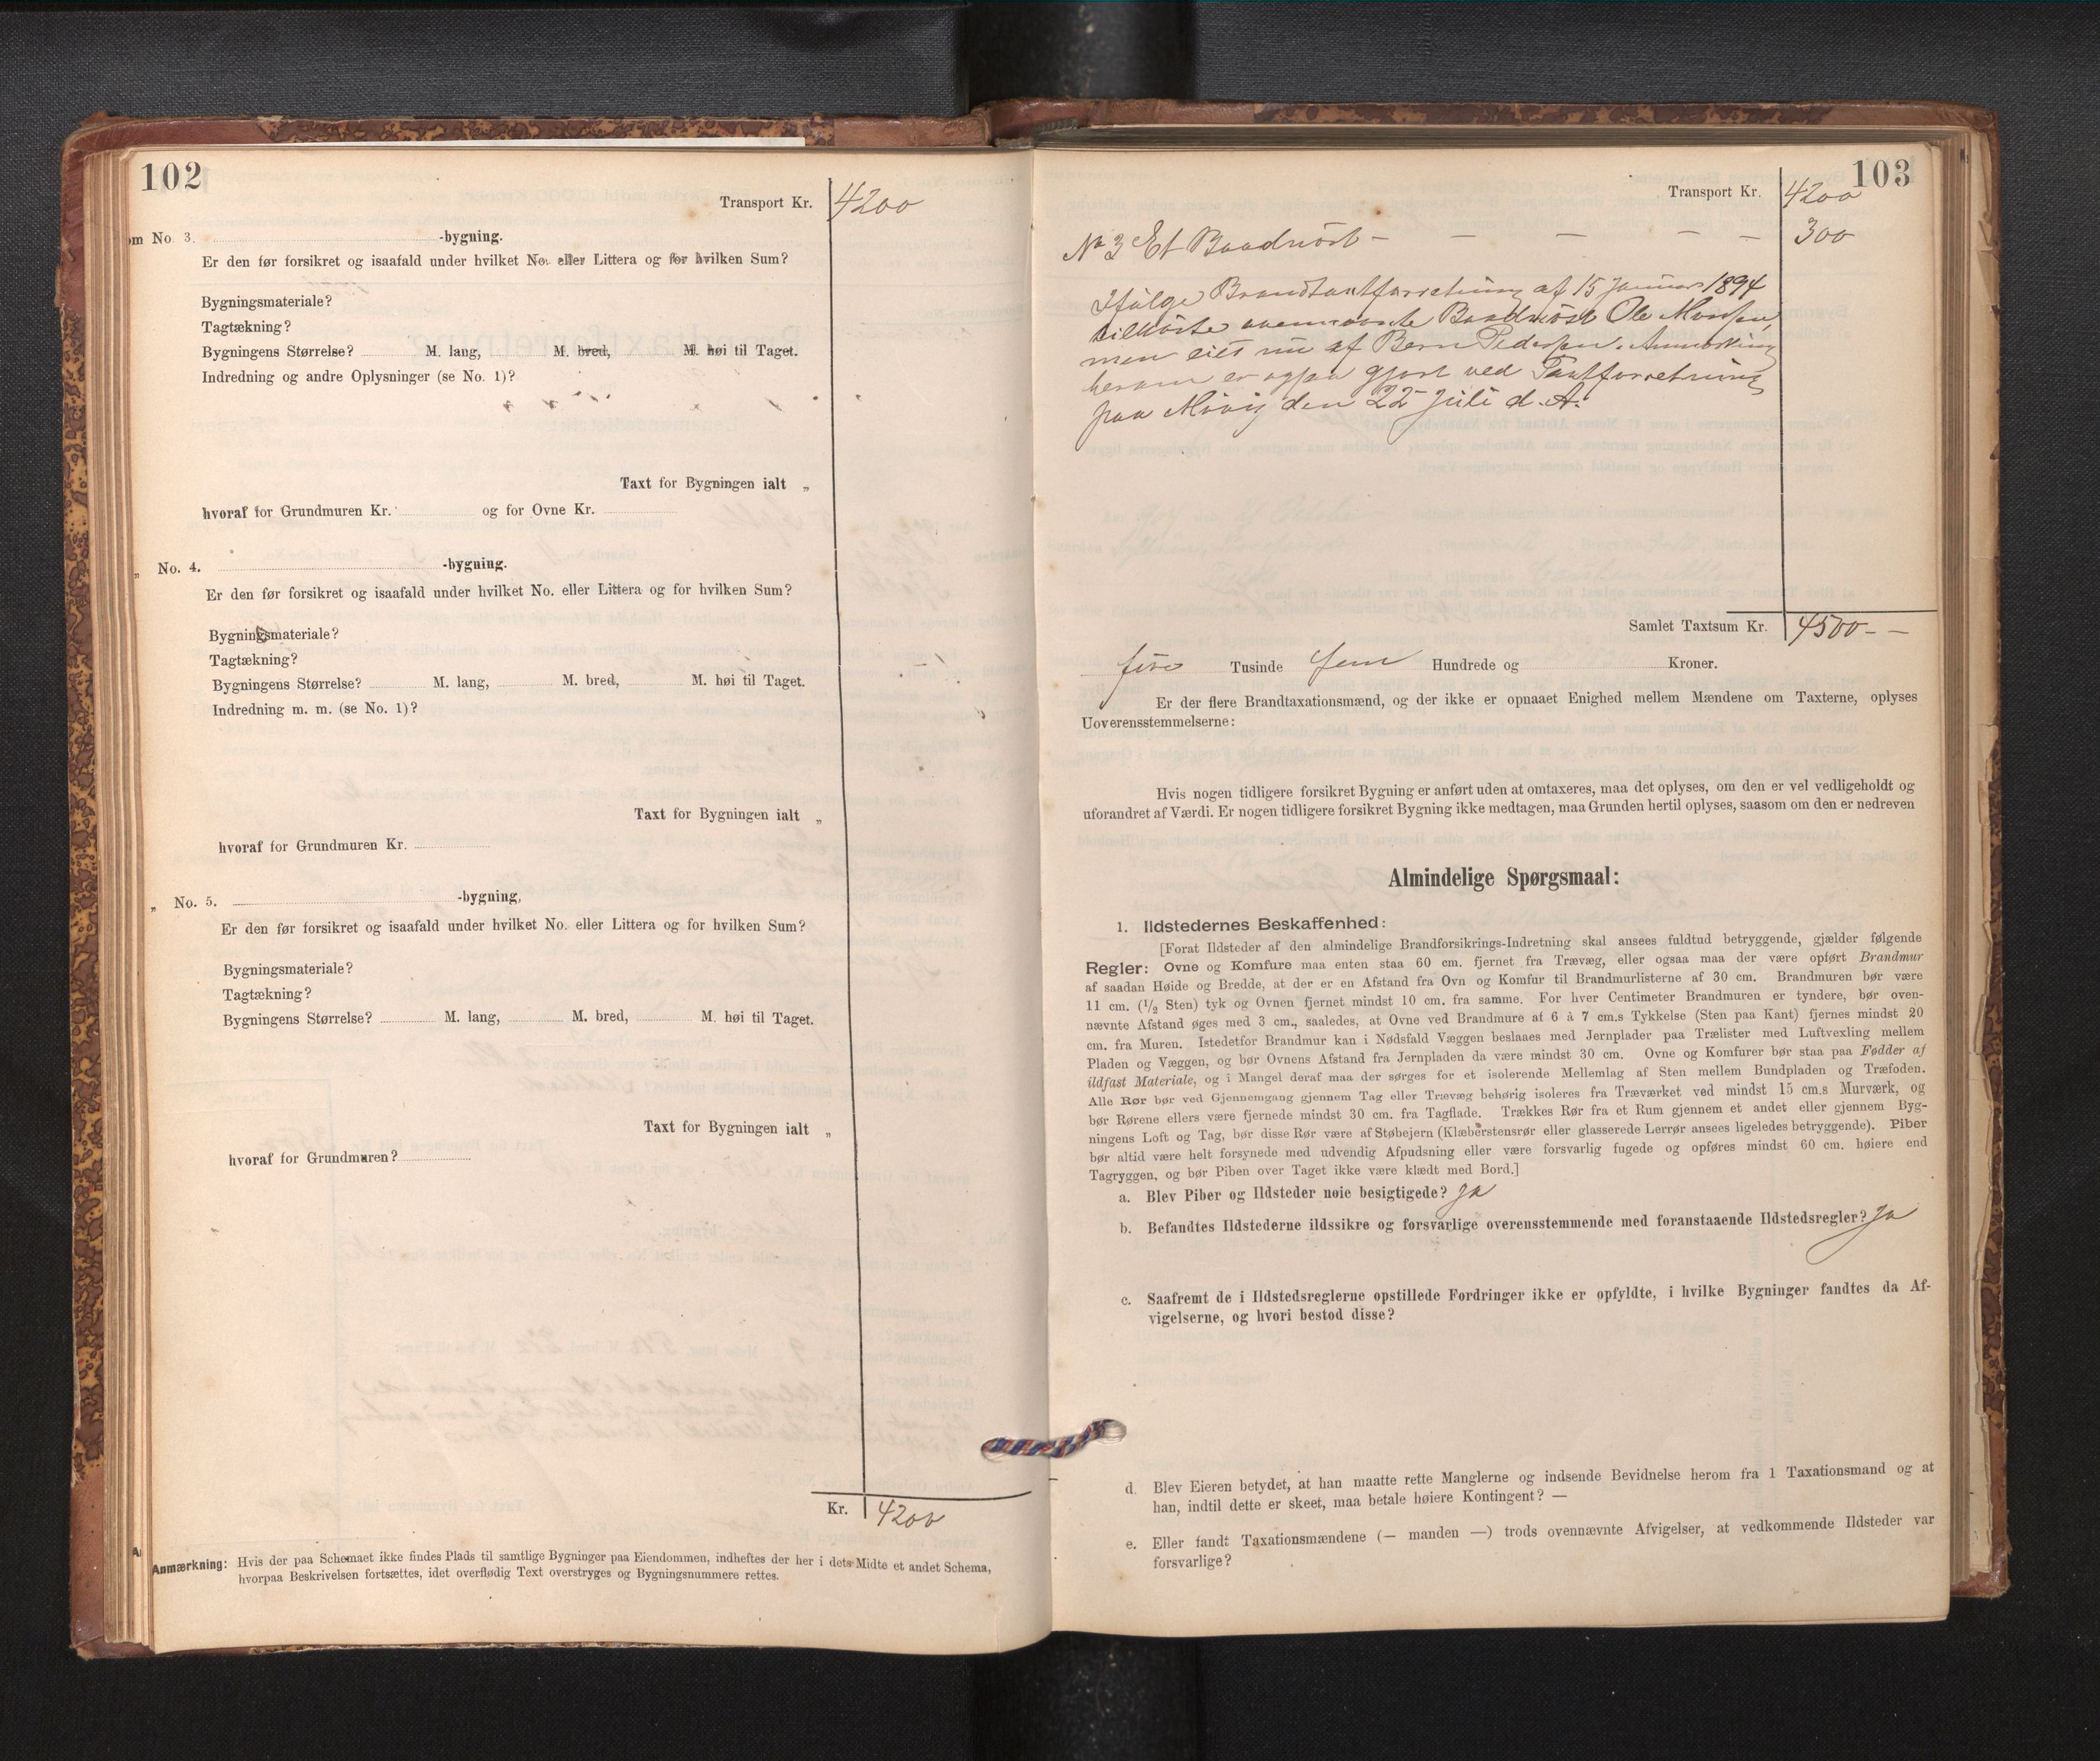 102
Transport Kr. 4200
om No. 3. -bygning.
Er den før forsikret og isaafald under hvilket No. eller Littera og for hvilken Sum?
Bygningsmateriale?
Tagtækning?
Bygningens Størrelse? M. lang, M. bred, M. høi til Taget.
Indredning og andre Oplysninger (se No. 1)?
Taxt for Bygningen ialt „
hvoraf for Grundmuren Kr. og for Ovne Kr.
„ No. 4. -bygning.
Er den før forsikret og isaafald under hvilket No. eller Littera og for hvilken Sum?
Bygningsmateriale?
Tagtækning?
Bygningens Størrelse? M. lang, M. bred, M. høi til Taget.
Indredning m. m. (se No. 1)?
Taxt for Bygningen ialt „
hvoraf for Grundmuren Kr.
„ No. 5. -bygning,
Er den før forsikret og isaafald under hvilket No. eller Littera og for hvilken Sum?
Bygningsmateriale?
Tagtækning?
Bygningens Størrelse? M. lang, M. bred, M. høi til Taget.
Taxt for Bygningen ialt „
hvoraf for Grundmuren?
Kr. 4200
Anmærkning: Hvis der paa Schemaet ikke findes Plads til samtlige Bygninger paa Eiendommen, indheftes der her i dets Midte et andet Schema,
hvorpaa Beskrivelsen fortsættes, idet overflødig Text overstryges og Bygningsnummere rettes.
103
Transport Kr. 4200
No 3 Et Baadnøst - - - - - 300
Ifølge Brandtaxtforretning af 15 Januar 1894
tilhørte ovennævnte Baadnøst Ole Monsen,
men eies nu af Bern Pedersen. Anmærkning
herom er ogsaa gjort ved Taxtforretning
paa den 22 Juli d. A.
Samlet Taxtsum Kr. 4500 - -
fire Tusinde fem Hundrede og Kroner.
Er der flere Brandtaxationsmænd, og der ikke er opnaaet Enighed mellem Mændene om Taxterne, oplyses
Uoverensstemmelserne:
Hvis nogen tidligere forsikret Bygning er anført uden at omtaxeres, maa det oplyses, om den er vel vedligeholdt og
uforandret af Værdi. Er nogen tidligere forsikret Bygning ikke medtagen, maa Grunden hertil oplyses, saasom om den er nedreven
Almindelige Spørgsmaal:
1. Ildstedernes Beskaffenhed:
[Forat Ildsteder af den almindelige Brandforsikrings-Indretning skal ansees fuldtud betryggende, gjælder følgende
Regler: Ovne og Komfure maa enten staa 60 cm. fjernet fra Trævæg, eller ogsaa maa der være opført Brandmur
af saadan Høide og Bredde, at der er en Afstand fra Ovn og Komfur til Brandmurlisterne af 30 cm. Brandmuren bør være
11 cm. (1/2 Sten) tyk og Ovnen fjernet mindst 10 cm. fra samme. For hver Centimeter Brandmuren er tyndere, bør oven-
nævnte Afstand øges med 3 cm., saaledes, at Ovne ved Brandmure af 6 à 7 cm.s Tykkelse (Sten paa Kant) fjernes mindst 20
cm. fra Muren. Istedetfor Brandmur kan i Nødsfald Væggen beslaaes med Jernplader paa Trælister med Luftvexling mellem
Pladen og Væggen, og bør Ovnens Afstand fra Jernpladen da være mindst 30 cm. Ovne og Komfurer bør staa paa Fødder af
ildfast Materiale, og i Mangel deraf maa der sørges for et isolerende Mellemlag af Sten mellem Bundpladen og Træfoden.
Alle Rør bør ved Gjennemgang gjennem Tag eller Trævæg behørig isoleres fra Træværket ved mindst 15 cm.s Murværk, og
bør Rørene ellers være fjernede mindst 30 cm. fra Tagflade. Trækkes Rør fra et Rum gjennem et andet eller gjennem Byg-
ningens Loft og Tag, bør disse Rør være af Støbejern (Klæberstensrør eller glasserede Lerrør ansees ligeledes betryggende). Piber
bør altid være helt forsynede med udvendig Afpudsning eller være forsvarlig fugede og opføres mindst 60 cm. høiere end
Tagryggen, og bør Piben over Taget ikke være klædt med Bord.]
a. Blev Piber og Ildsteder nøie besigtigede? ja
b. Befandtes Ildstederne ildssikre og forsvarlige overensstemmende med foranstaaende Ildstedsregler? ja
c. Saafremt de i Ildstedsreglerne opstillede Fordringer ikke er opfyldte, i hvilke Bygninger fandtes da Af-
vigelserne, og hvori bestod disse?
d. Blev Eieren betydet, at han maatte rette Manglerne og indsende Bevidnelse herom fra 1 Taxationsmand og at
han, indtil dette er skeet, maa betale høiere Kontingent? —
e. Eller fandt Taxationsmændene (— manden —) trods ovennævnte Afvigelser, at vedkommende Ildsteder var
forsvarlige?